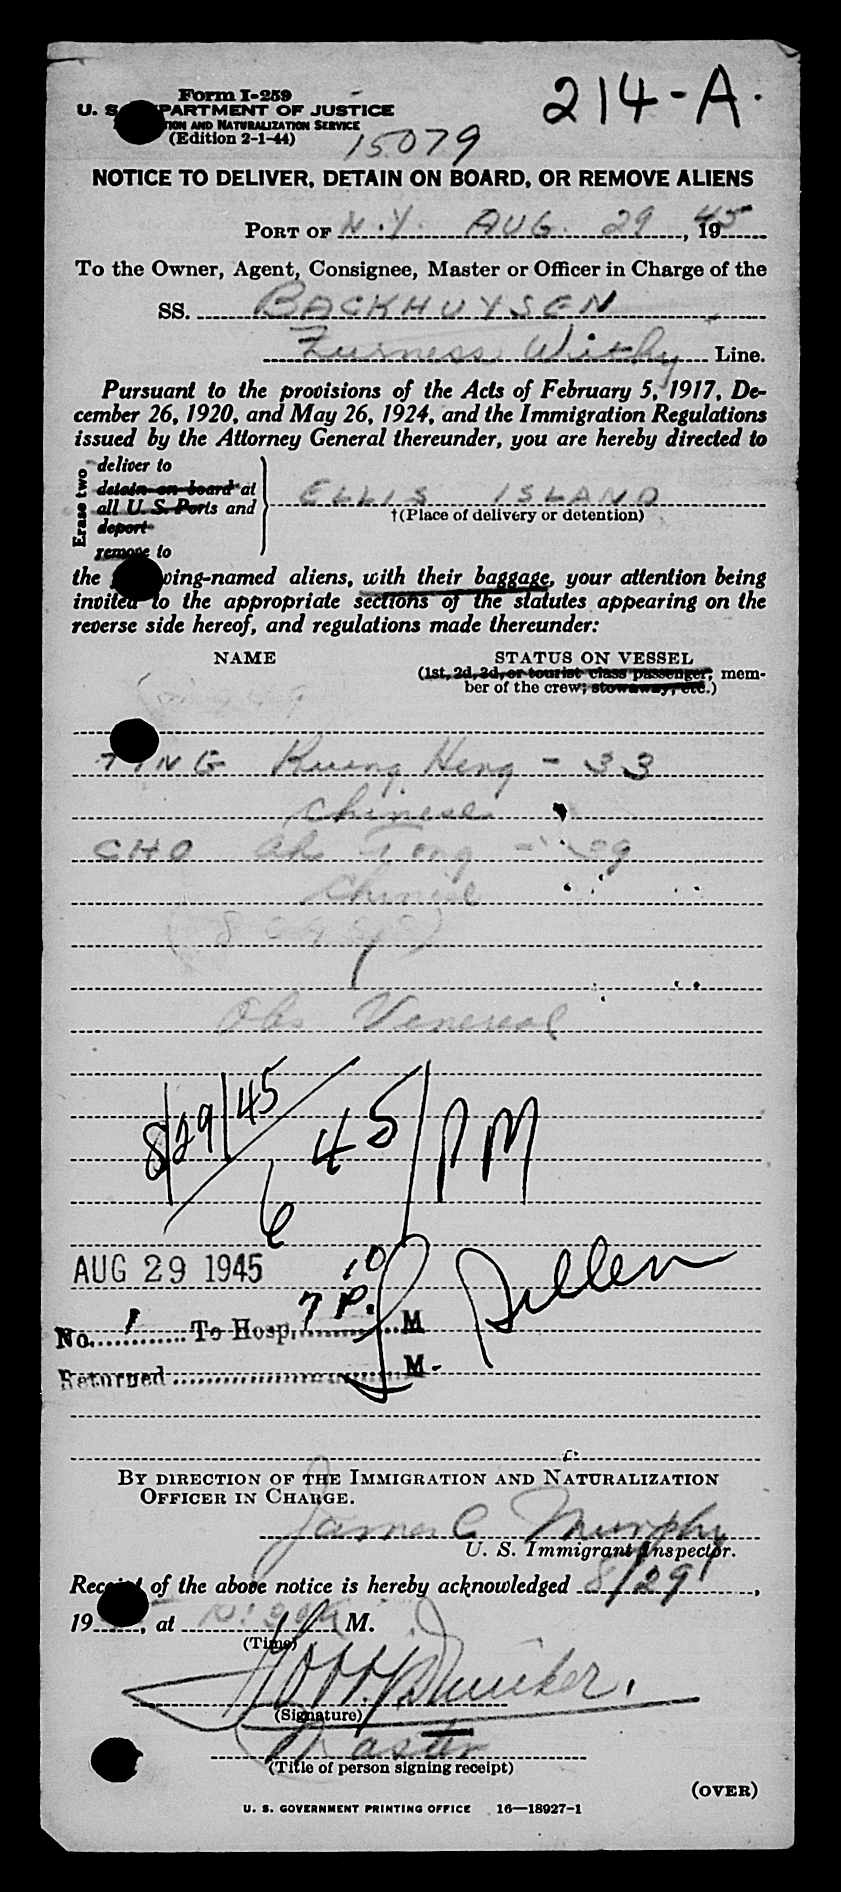 Form I-259
214-A.
U. S. DEPARTMENT OF JUSTICE
AND NATURALIZATION SERVICE
(Edition 2-1-44)
15079
NOTICE TO DELIVER, DETAIN ON BOARD, OR REMOVE ALIENS
PORT OF N.Y. AUG. 29, 1945
To the Owner, Agent, Consignee, Master or Officer in Charge of the
SS. BACKHUYSEN
Furness Withy Line.
Pursuant to the provisions of the Acts of February 5, 1917, De-
cember 26, 1920, and May 26, 1924, and the Immigration Regulations
issued by the Attorney General thereunder, you are hereby directed to
Erase two
deliver to
detain on board at
all U. S. Ports and
deport
remove to
ELLIS ISLAND
†(Place of delivery or detention)
the following-named aliens, with their baggage, your attention being
invited to the appropriate sections of the statutes appearing on the
reverse side hereof, and regulations made thereunder:
NAME STATUS ON VESSEL
(1st, 2d, 3d, or tourist class passenger; mem-
ber of the crew; stowaway, etc.)
TING Kueng Heng - 33
Chinese
CHO Ah Tong -
Chinese
Obs Venereal
8/29/45
6 45/PM
AUG 29 1945
No. 1 To Hosp. 7 10 P. M
Returned M.
BY DIRECTION OF THE IMMIGRATION AND NATURALIZATION
OFFICER IN CHARGE.
James C Murphy
U. S. Immigrant Inspector.
Receipt of the above notice is hereby acknowledged 8/29,
19, at M.
(Time)
(Signature)
Master
(Title of person signing receipt)
(OVER)
U. S. GOVERNMENT PRINTING OFFICE 16—18927-1